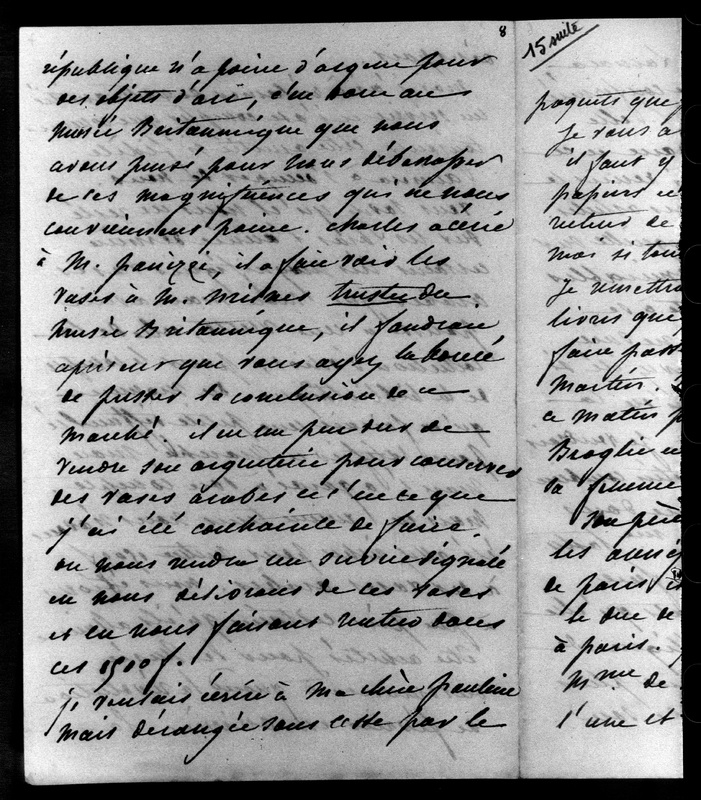 8
république n'a point d'argent pour
des objets d'art, c'est donc au
musée Britannique que nous
avons pensé pour nous débarrasser
de ces magnificences qui ne nous
conviennent point. Charles a écrit
à M. panizzi, il a fait voir les
vases à M. Milnes trustee du
musée Britannique, il faudrait
apresent que vous ayez la bonté
de presser la conclusion de ce
marché. il est un peu dur de
vendre son argenterie pour conserver
des vases arabes et c'est ce que
j'ai été contrainte de faire.
on nous rendra un service signalé
en nous délivrant de ces vases
et en nous faisant rentrer dans
ces 1500 f.
je voulais écrire à ma chère pauline
mais dérangée sans cesse par le
15 suite
paquets que
Je vous a
il faut y
papiers et
retour de
moi si tou
Je remettra
livres que
faire pass
Martin.
ce matin p
Broglie
sa femme
Son père
les
de paris
le duc de
à paris.
Mme de
l'une et